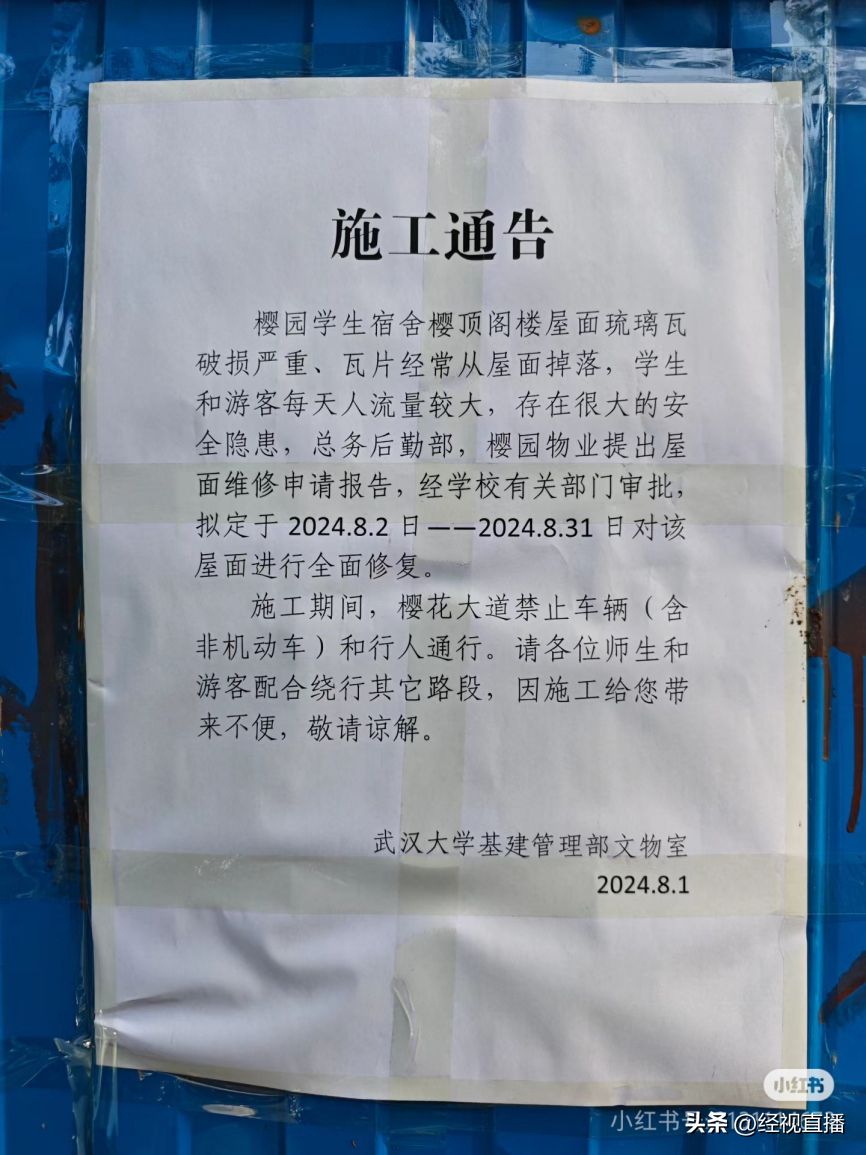 施工通告
樱园学生宿舍樱顶阁楼屋面琉璃瓦
破损严重、瓦片经常从屋面掉落，学生
和游客每天人流量较大，存在很大的安
全隐患，总务后勤部，樱园物业提出屋
面维修申请报告，经学校有关部门审批，
拟定于 2024.8.2 日——2024.8.31 日对该
屋面进行全面修复。
施工期间，樱花大道禁止车辆（含
非机动车）和行人通行。请各位师生和
游客配合绕行其它路段，因施工给您带
来不便，敬请谅解。
武汉大学基建管理部文物室
2024.8.1
小红书
小红书
头条 @经视直播